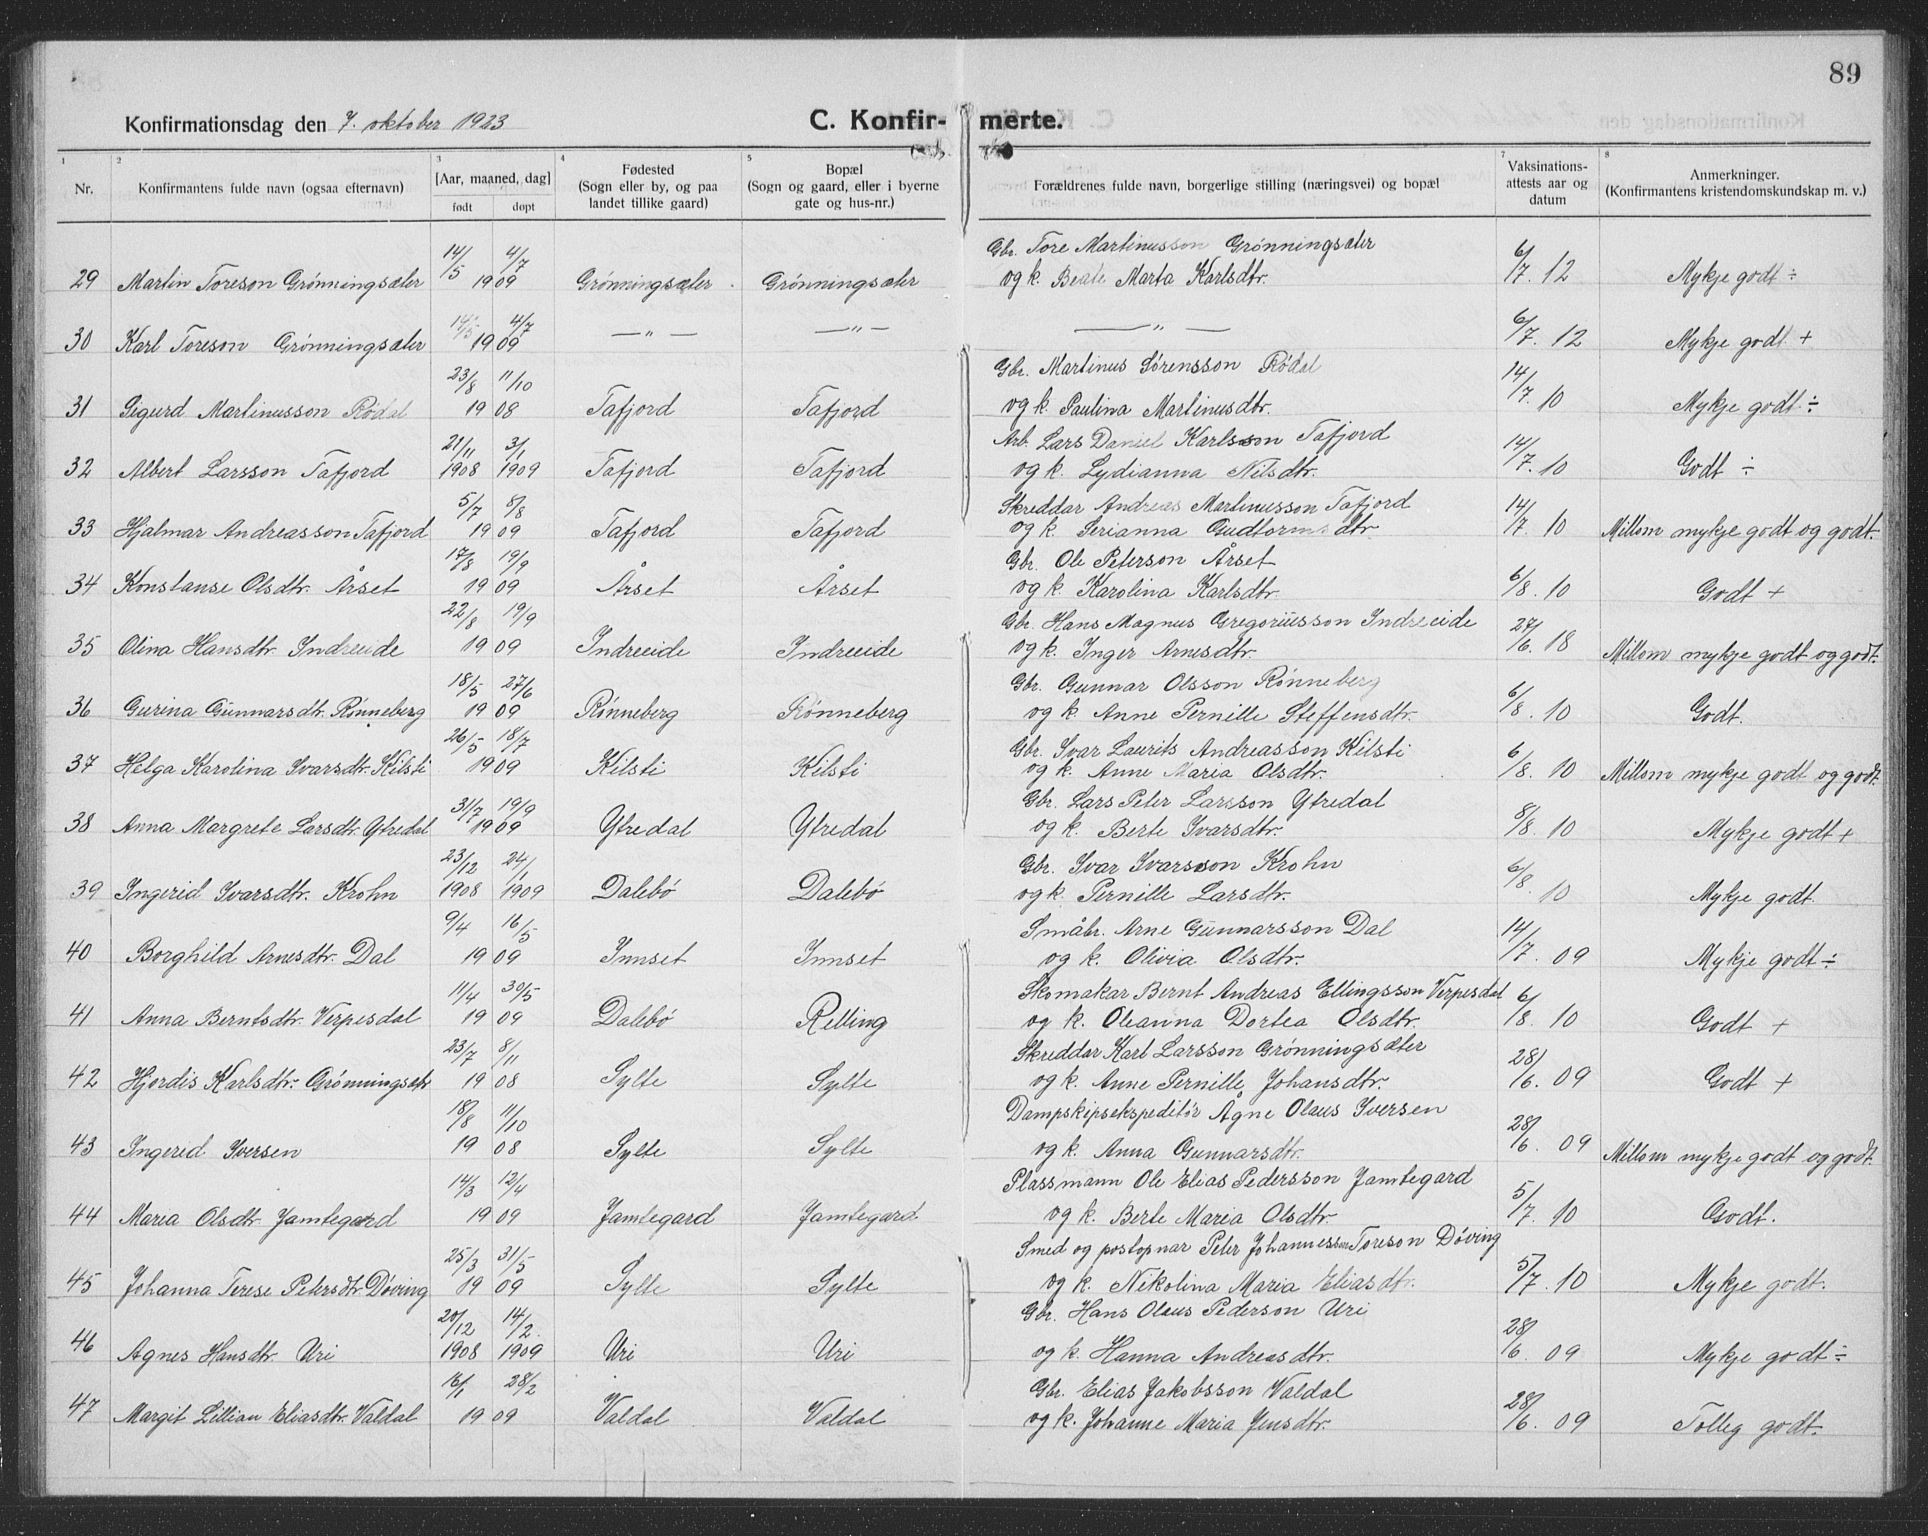 89
Konfirmationsdag den 7. oktober 1923 C. Konfir- merte.
1 2 3 4 5 7 8
Nr. Konfirmantens fulde navn (ogsaa efternavn) [Aar, maaned, dag] født døpt Fødested (Sogn eller by, og paa landet tillike gaard) Bopæl (Sogn og gaard, eller i byerne gate og hus-nr.) Forældrenes fulde navn, borgerlige stilling (næringsvei) og bopæl Vaksinations-attests aar og datum Anmerkninger. (Konfirmantens kristendomskundskap m. v.)
14/5 4/7 Gbr. Tore Martinusson Grønningsæter
29 Martin Toreson Grønningsæter 1909 Grønningsæter Grønningsæter og k. Beate Marta Karlsdtr. 6/7. 12 Mykje godt ÷
14/5 4/7
30 Karl Toreson Grønningsæter 1909 — " — — " — — " — 6/7. 12 Mykje godt +
23/8 11/10 Gbr. Martinus Sørensson Rødal
31 Sigurd Martinusson Rødal 1908 Tafjord Tafjord og k. Paulina Martinusdtr. 14/7. 10 Mykje godt ÷
21/11 3/1 Arb. Lars Daniel Karlsson Tafjord
32 Albert Larsson Tafjord 1908 1909 Tafjord Tafjord og k. Lydianna Nilsdtr. 14/7. 10 Godt ÷
5/7 8/8 Skreddar Andreas Martinusson Tafjord
33 Hjalmar Andreasson Tafjord 1909 Tafjord Tafjord og k. Serianna Gudtormsdtr 14/7. 10 Millom mykje godt og godt.
17/8 19/9 Gbr. Ole Peterson Årset
34 Konstanse Olsdtr. Årset 1909 Årset Årset og k. Karolina Karlsdtr. 6/8. 10 Godt +
22/8 19/9 Gbr. Hans Magnus Gregoriusson Indreeide
35 Olina Hansdtr. Indreeide 1909 Indreeide Indreeide og k. Inger Arnesdtr. 27/6. 18 Millom mykje godt og godt.
18/5 27/6 Gbr. Gunnar Olsson Rønneberg
36 Gurina Gunnarsdtr. Rønneberg 1909 Rønneberg Rønneberg og k. Anne Pernille Steffensdtr. 6/8. 10 Godt.
26/5 18/7 Gbr. Ivar Laurits Andreasson Kilsti
37 Helga Karolina Ivarsdtr. Kilsti 1909 Kilsti Kilsti og k. Anne Maria Olsdtr. 6/8. 10 Millom mykje godt og godt.
31/7 19/9 Gbr. Lars Peter Larsson Ytredal
38 Anna Margrete Larsdtr. Ytredal 1909 Ytredal Ytredal og k. Berte Ivarsdtr. 8/8. 10 Mykje godt +
23/12 24/1 Gbr. Ivar Ivarsson Krohn
39 Ingerid Ivarsdtr. Krohn 1908 1909 Dalebø Dalebø og k. Pernille Larsdtr. 6/8. 10 Mykje godt.
9/4 16/5 Småbr. Arne Gunnarsson Dal
40 Borghild Arnesdtr. Dal 1909 Innset Innset og k. Olivia Olsdtr. 14/7. 09 Mykje godt ÷
11/4 30/5 Skomakar Bernt Andreas Ellingsson Verpesdal
41 Anna Berntsdtr. Verpesdal 1909 Dalebø Relling og k. Oleanna Dortea Olsdtr. 6/8. 10 Godt +
23/7 8/11 Skreddar Karl Larsson Grønningsæter
42 Hjørdis Karlsdtr. Grønningsætr 1908 Sylte Sylte og k. Anne Pernille Johansdtr. 28/6. 09 Godt +
18/8 11/10 Dampskipsekspeditør Ågne Olaus Iversen
43 Ingerid Iversen 1908 Sylte Sylte og k. Anna Gunnarsdtr. 28/6. 09 Millom mykje godt og godt.
14/3 12/4 Plassmann Ole Elias Pedersson Jamtegard
44 Maria Olsdtr. Jamtegard 1909 Jamtegard Jamtegard og k. Berte Maria Olsdtr. 5/7. 10 Godt.
25/3 31/5 Smed og postopnar Peter Johannesson Toreson Døving
45 Johanna Terese Petersdtr. Døving 1909 Sylte Sylte og k. Nikolina Maria Eliasdtr. 5/7. 10 Mykje godt.
20/12 14/2 Gbr. Hans Olaus Pederson Uri
46 Agnes Hansdtr. Uri 1908 1909 Uri Uri og k. Hanna Andreasdtr. 28/6. 09 Mykje godt ÷
16/1 28/2 Gbr. Elias Jakobsson Valdal
47 Margit Lillian Eliasdtr. Valdal 1909 Valdal Valdal og k. Johanne Maria Jensdtr. 28/6. 09 Tolleg godt.